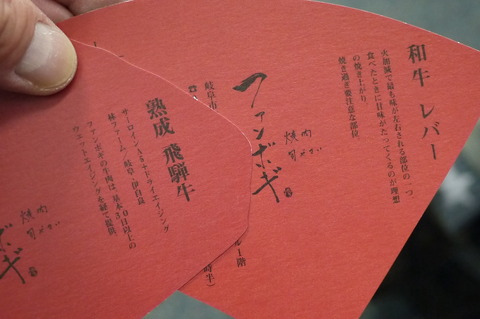 和牛 レバー
火加減で最も味が左右される部位の一つ
食べたときに甘味がたつてくるのが理想
の焼き上がり。
焼き過ぎ要注意な部位。
焼肉
ファンボギ
岐阜市
ルー階
時半）
熟成 飛騨牛
サーロインA5+ドライエイジング
林ファーム/岐阜・伊自良
ファンボギの牛肉は、基本30日以上の
ウェットエイジングを経て提供。
焼肉
ンボギ